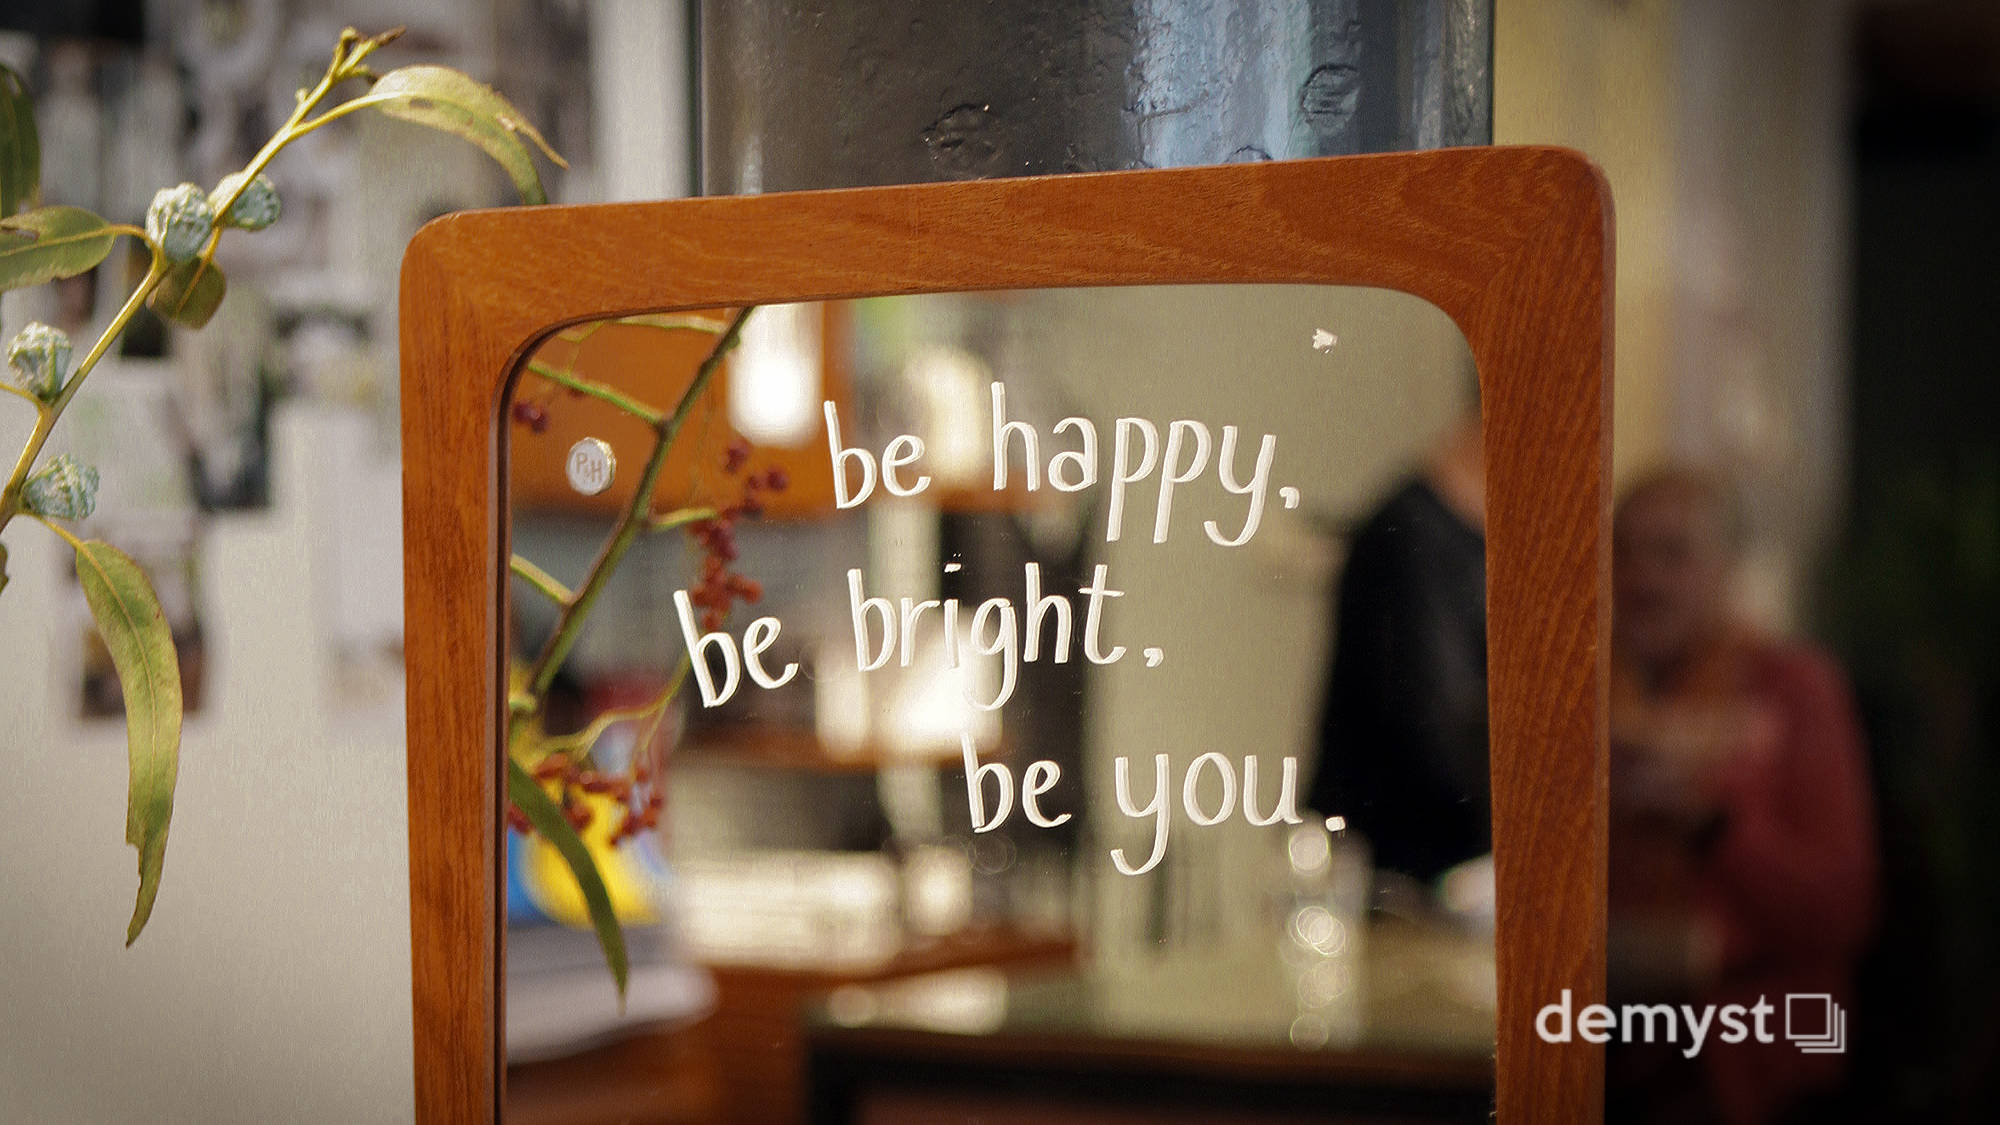 P&H
be happy,
be bright,
be you.
demyst